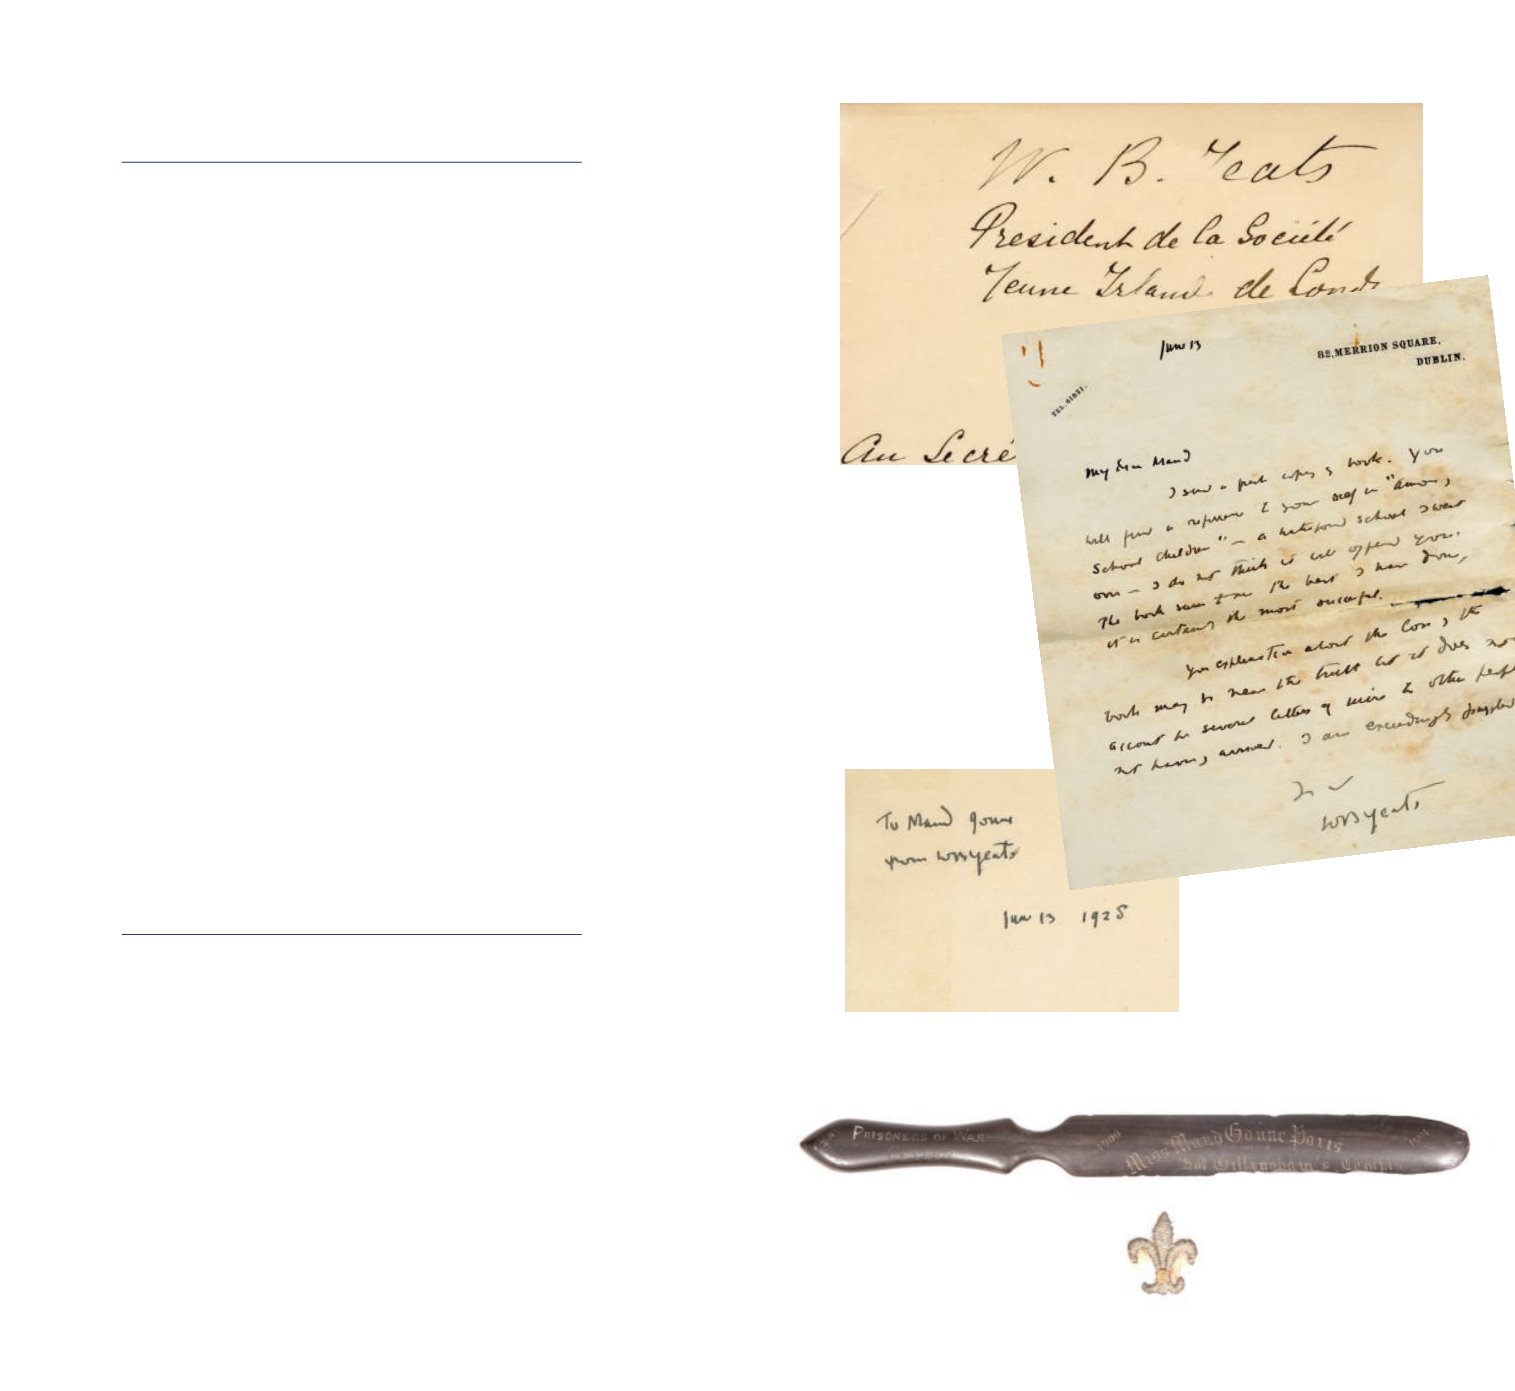 W. B. Yeats
President de la Société
Jeune Irland de Lond
Au Secré
June 13
82, MERRION SQUARE,
DUBLIN.
My dear Maud
I send a book. You
will find a reference to your self in "Among
School Children" — a school I went
over — I do not think it will offend you.
The book the best I have done,
it is certainly the most successful.
Your explanation about the loss of the
book may be near the truth but it does not
account for several letters of mine to other peopl
not having arrived. I am exceedingly puzzled
WB Yeats
To Maud Gonne
from WB Yeats
June 13 1928
PRISONERS OF WAR
1900
Miss Maud Gonne Paris